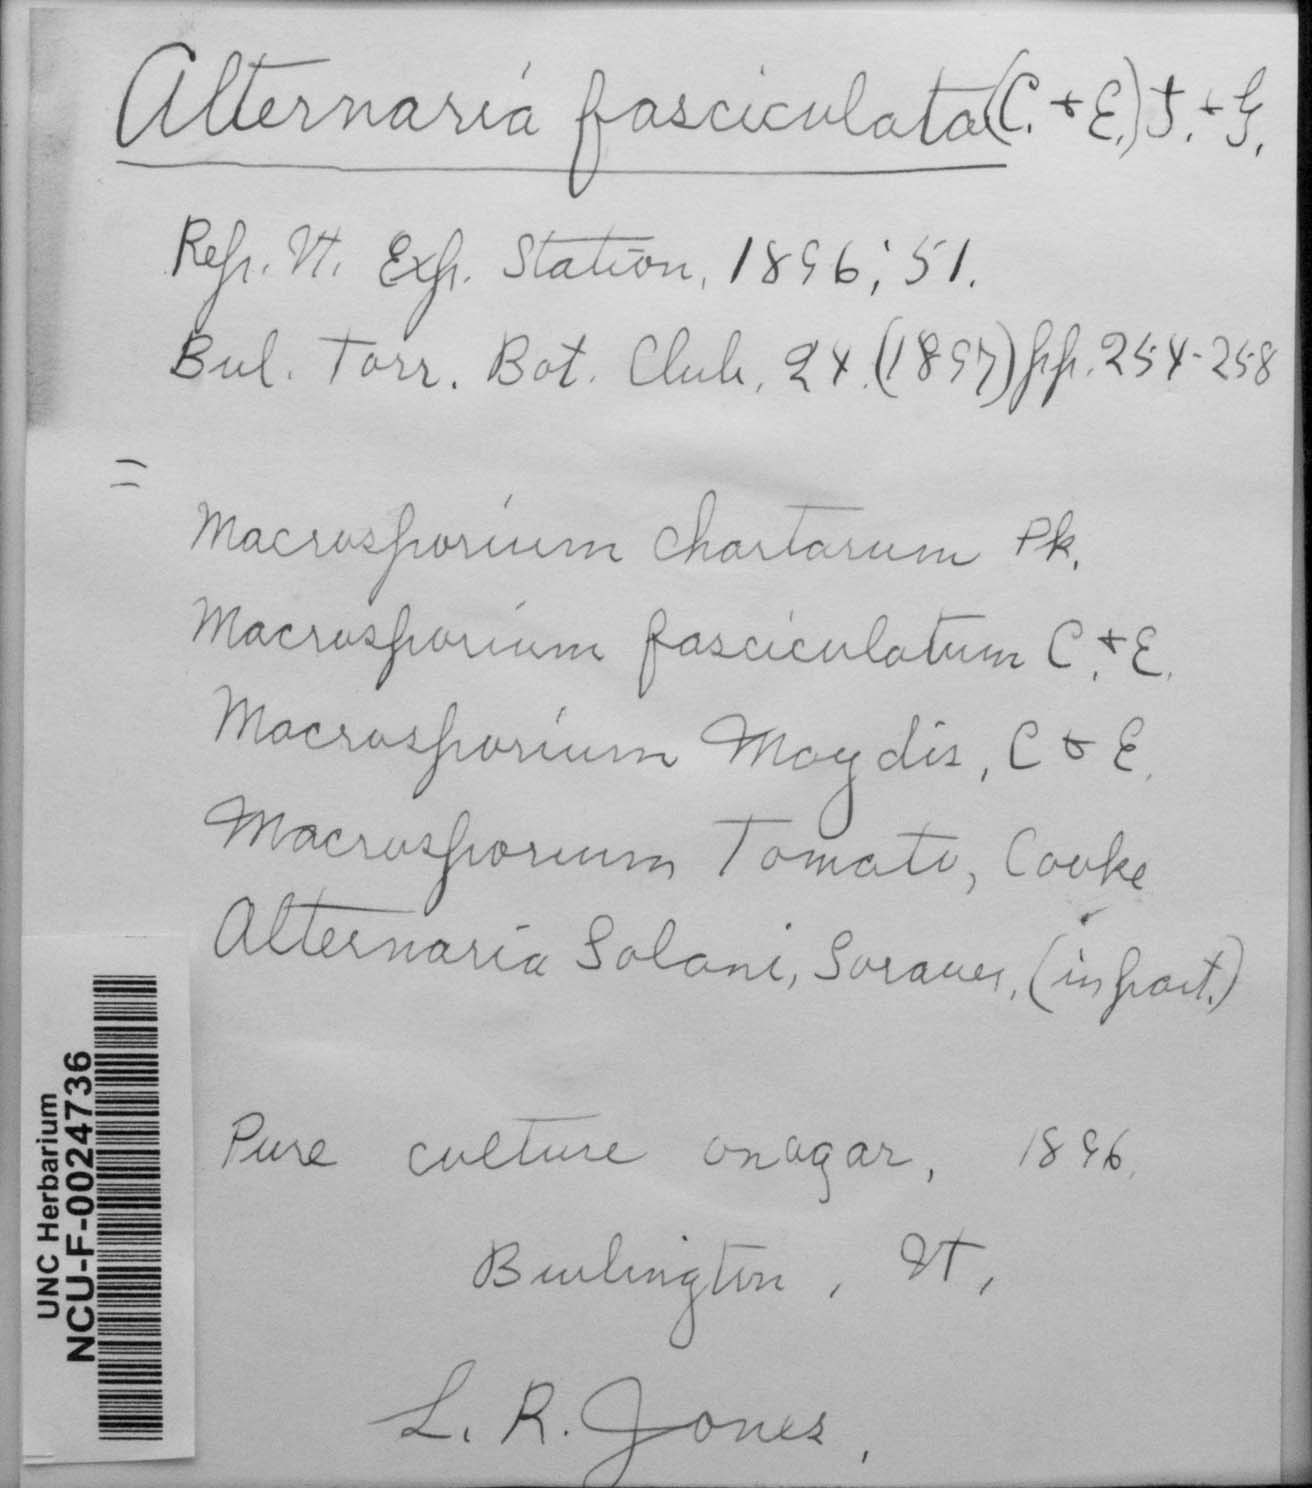 Alternaria fasciculata (C. & E.) J. & G.
Rep. Vt. Exp. Station, 1896; 51.
Bul. Torr. Bot. Club, 24. (1897) pp. 254-258
=
Macrosporium chartarum Pk.
Macrosporium fasciculatum C. & E.
Macrosporium Maydis, C & E.
Macrosporium Tomato, Cooke
Alternaria Solani, Sorauer, (in part.)
Pure culture on agar, 1896.
Burlington, Vt,
L. R. Jones,
UNC Herbarium
NCU-F-0024736